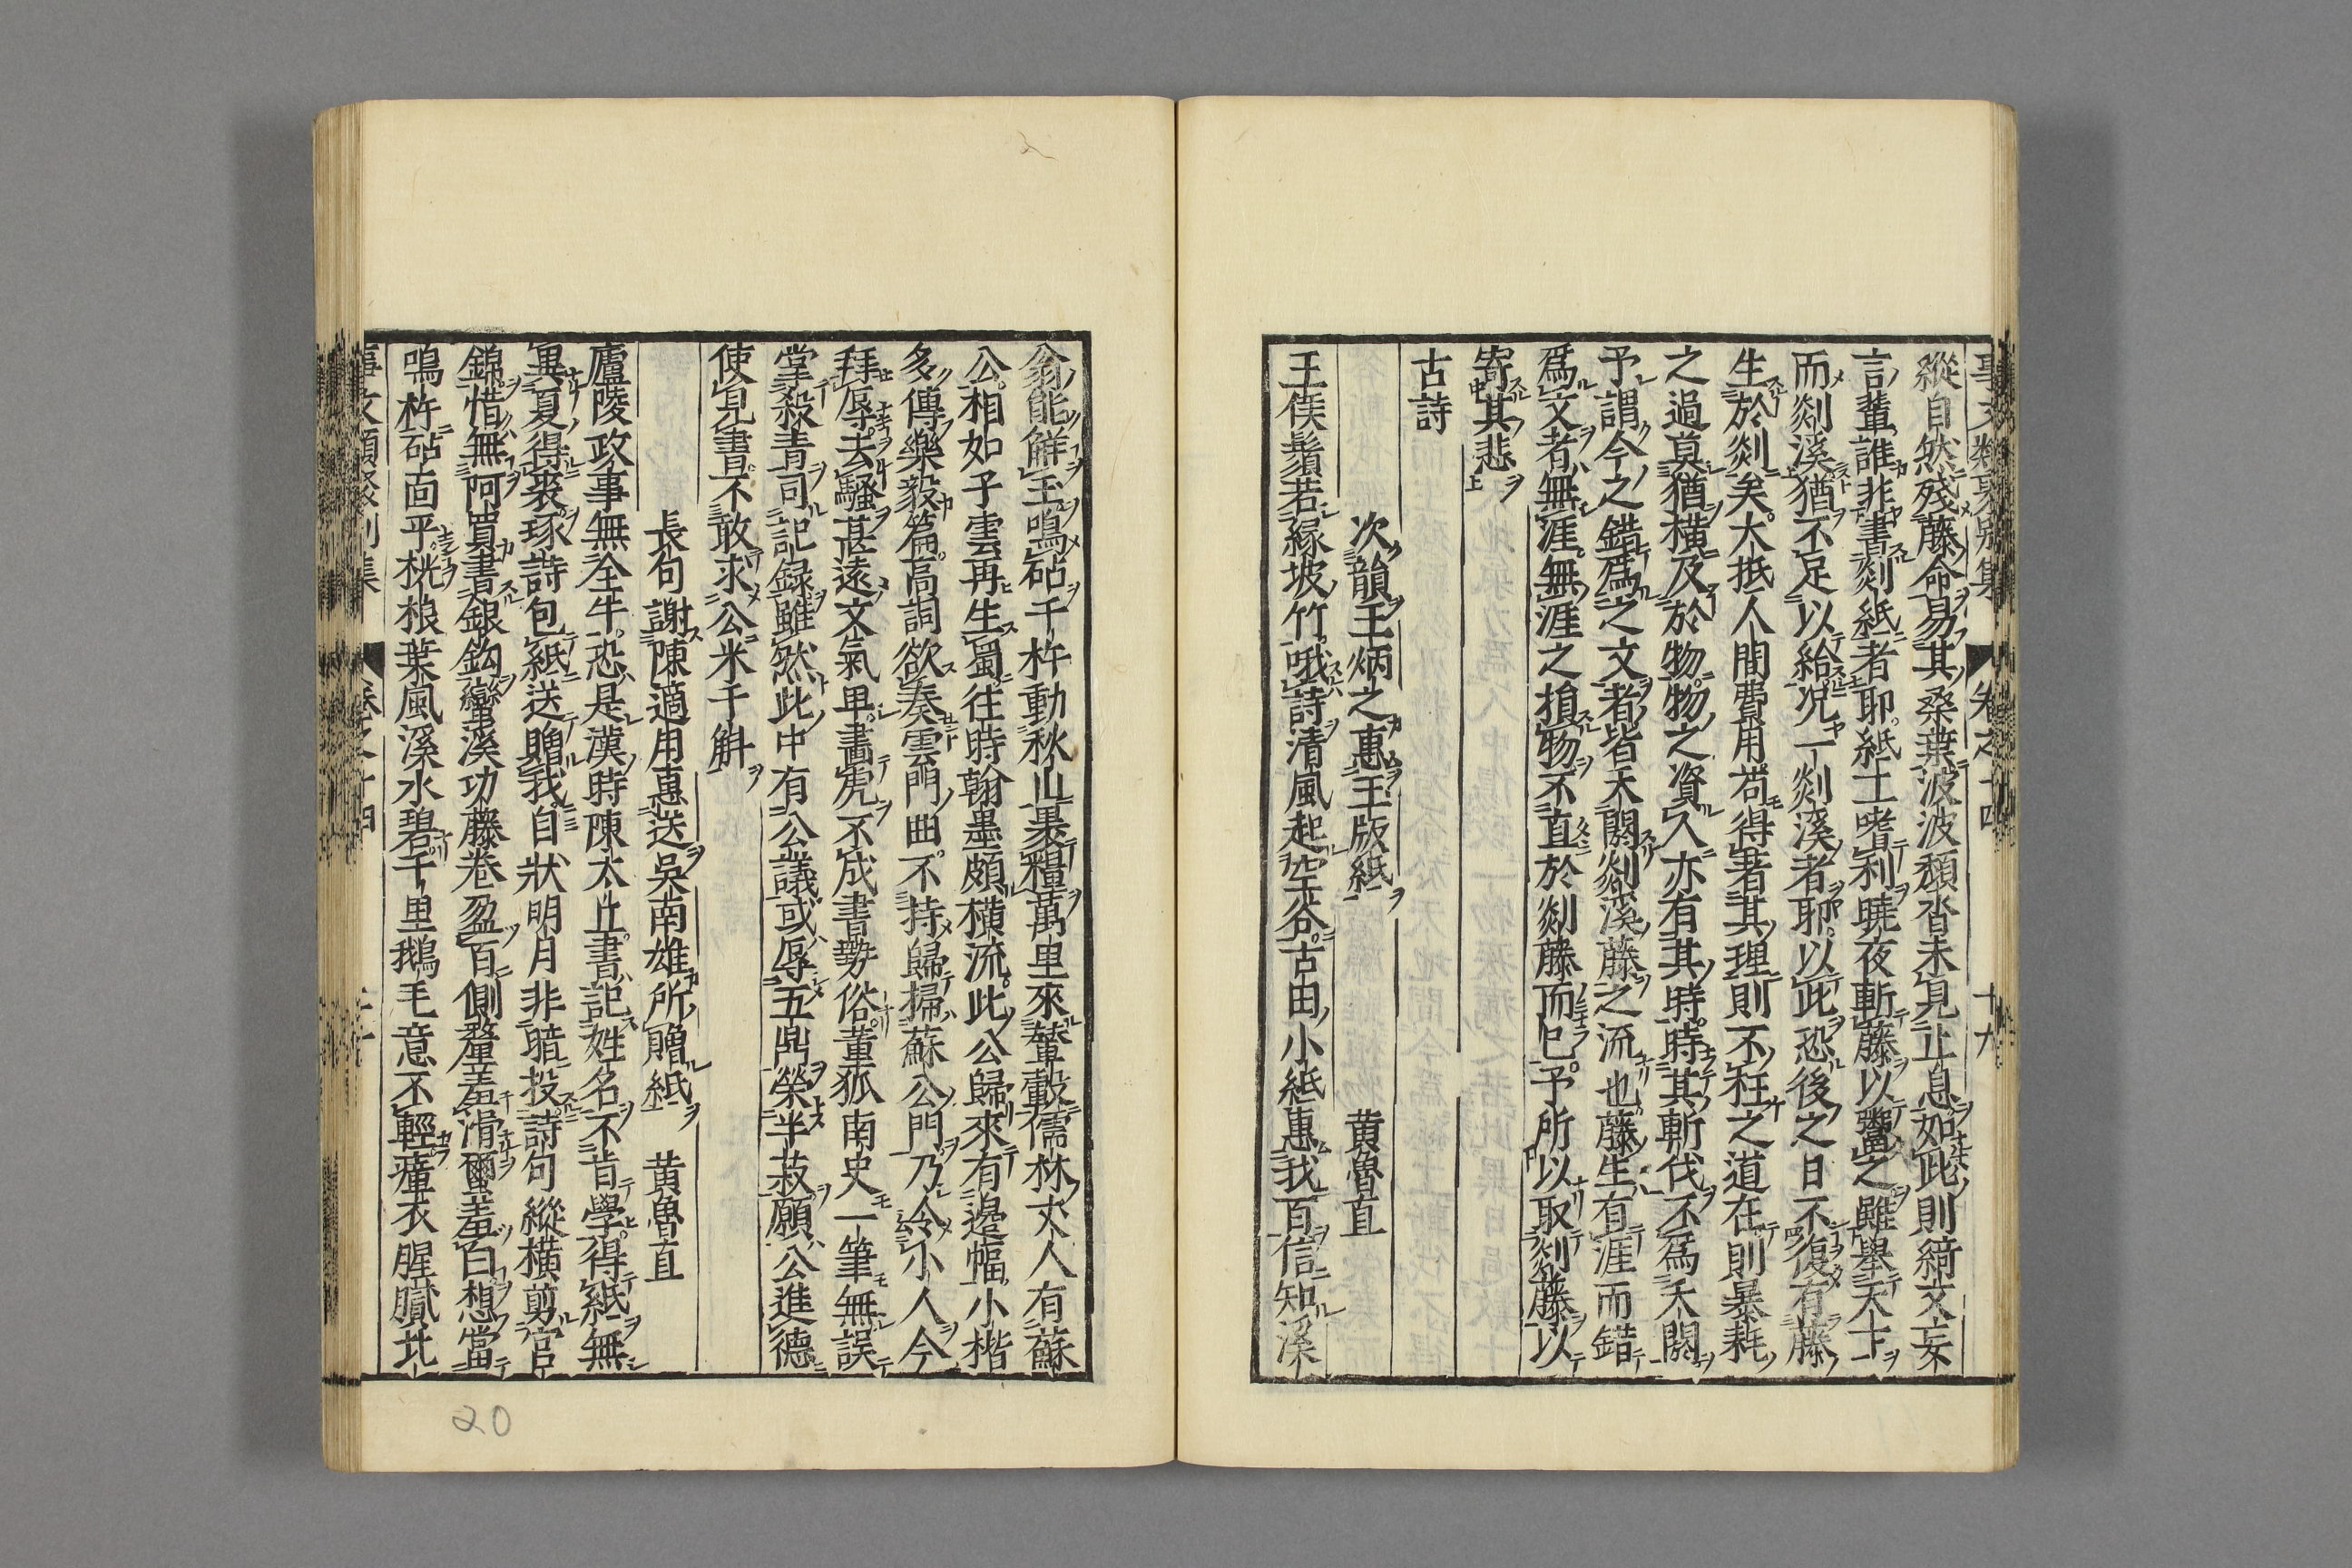 事文類聚別集 卷之十四 十九
縱自然殘藤命易其桑葉波波頹沓未見止息如此則綺文妄
言輩誰非書剡紙者耶紙工嗜利曉夜斬藤以鬻之雖舉天下
而剡溪猶不足以給况一剡溪者耶以此恐後之日不復有藤
生於剡矣大抵人間費用苟得著其理則不枉之道在則暴耗
之過莫猶橫及於物物之資人亦有其時時其斬伐不爲夭閼
予謂今之錯爲之文者皆夭閼剡溪藤之流也藤生有涯而錯
爲文者無涯無涯之損物不直於剡藤而已予所以取剡藤以
寄其悲
古詩
次韻王炳之惠玉版紙 黄魯直
王侯鬚若緣坡竹哦詩清風起空谷古田小紙惠我百信知溪
翁能解玉鳴砧千杵動秋山裹糧萬里來輦轂儒林丈人有蘇
公相如子雲再生蜀往時翰墨頗橫流此公歸來有邊幅小楷
多傳樂毅篇高詞欲奏雲門曲不持歸掃蘇公門乃令小人今
拜辱去騷甚遠文氣卑畫虎不成書勢俗董狐南史一筆無誤
掌殺青司記録雖然此中有公議或辱五鼎榮半菽願公進德
使見書不敢求公米千斛
長句謝陳適用惠送吳南雄所贈紙 黄魯直
廬陵政事無全牛恐是漢時陳太丘書記姓名不肯學得紙無
異夏得裘琢詩包紙送贈我自狀明月非暗投詩句縱横剪宫
錦惜無阿買書銀鈎蠻溪功藤卷盈百側釐羞滑蠒羞白想當
鳴杵砧面平桄榔葉風溪水碧千里鵝毛意不輕瘴衣腥膩北
事文類聚別集 卷之十四
20